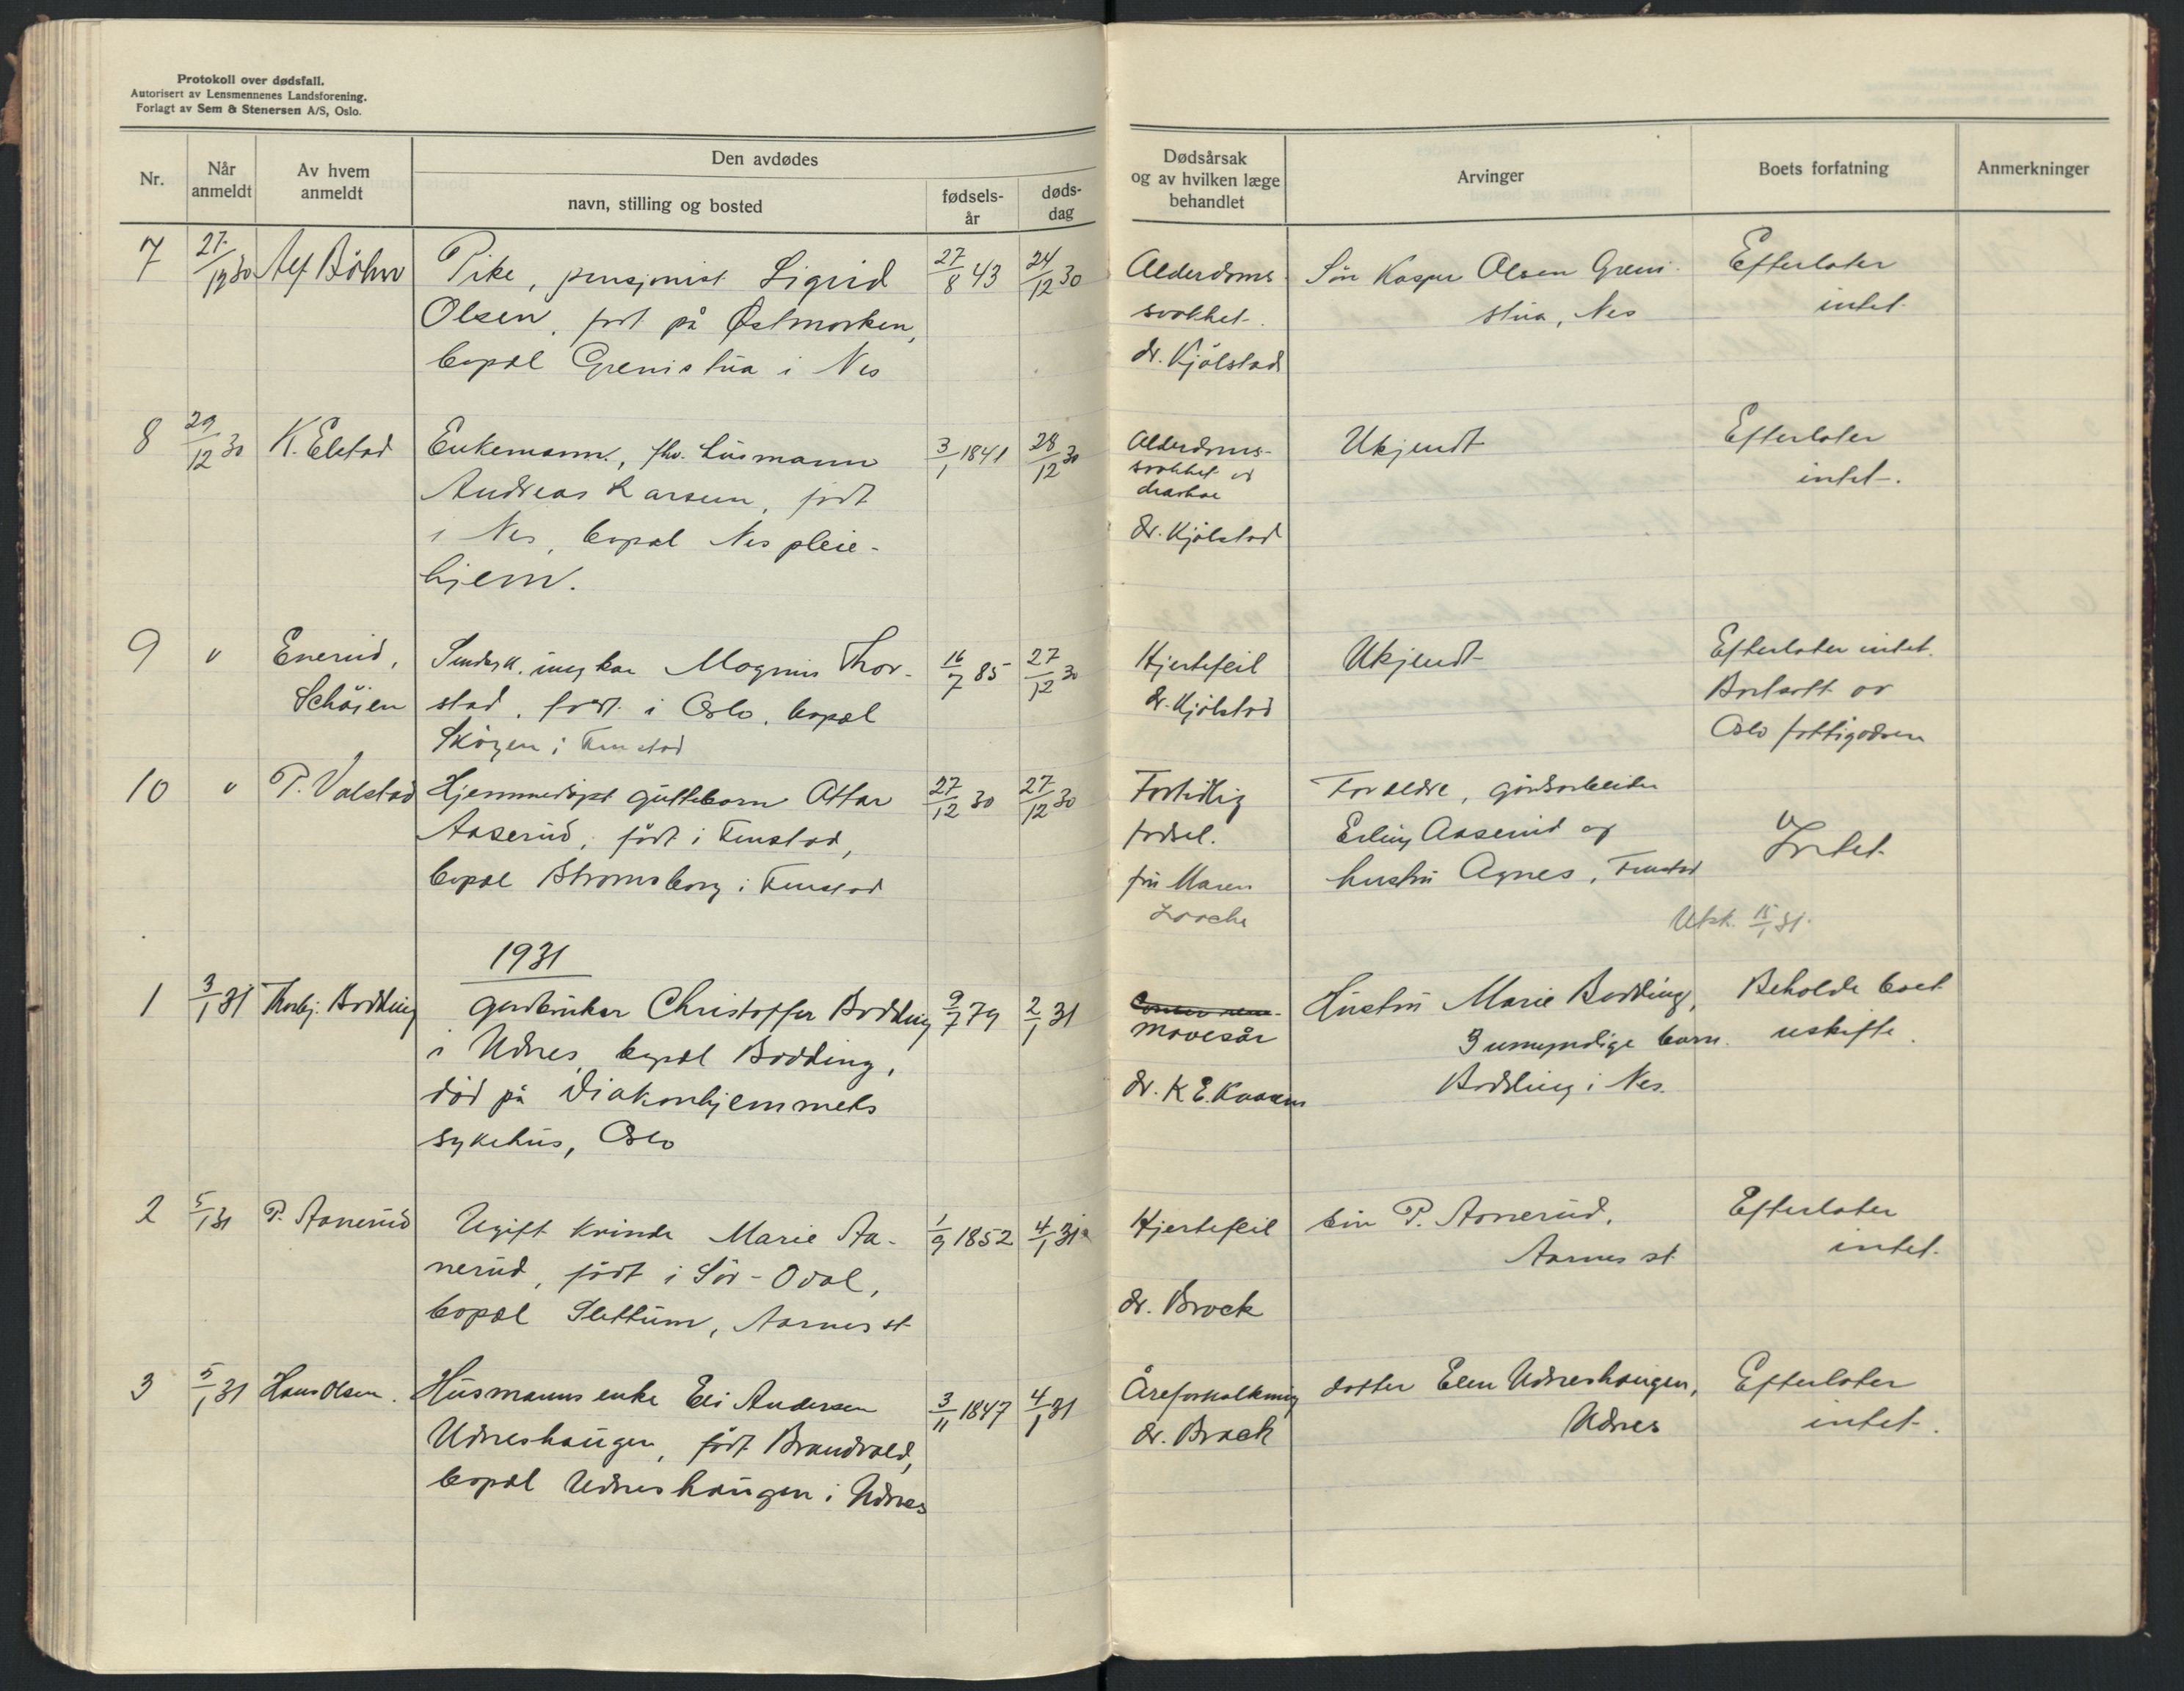 Protokoll over dødsfall.
Autorisert av Lensmennenes Landsforening.
Forlagt av Sem & Stenersen A/S, Oslo.
Nr.
Når
anmeldt
Av hvem
anmeldt
Den avdødes
navn, stilling og bosted
fødsels-
år
døds-
dag
Dødsårsak
og av hvilken læge
behandlet
Arvinger
Boets forfatning
Anmerkninger
7
27/12 30
Alf Böhn
Pike, pensjonist Sigrid
Olsen, født på Østmorken,
bopæl Grenistua i Nes
27/8 43
24/12 30
Alderdoms-
svakhet.
dr. Kjölstad
Sön Kasper Olsen Greni-
stua, Nes
Efterlater
intet
8
29/12 30
K. Elstad
Enkemann, fhv. husmann
Andreas Larsen, født
i Nes, bopæl Nes pleie-
hjem.
3/1 1841
28/12 30
Alderdoms-
svakhet og
diarhoe
dr. Kjölstad
Ukjendt
Efterlater
intet.
9
"
Enerud,
Schöien
Magnus Thor-
stad, født i Oslo, bopæl
Skogen i Fenstad
16/7 85
27/12 30
Hjertefeil
dr. Kjölstad
Ukjendt
Efterlater intet.
Bortsatt av
Oslo fattigvesen
10
"
P. Valstad
Hjemmedöpt guttebarn Ottar
Aaserud, födt i Fenstad,
bopæl Strömsborg i Fenstad
27/12 30
27/12 30
Fortidlig
fødsel.
fru Maren
Forældre, gårdsarbeider
Erling Aaserud og
hustru Agnes, Fenstad
Intet
Utsk. 15/1 31.
1931
1
3/1 31
Thorbj. Bodding
Gårdbruker Christoffer Bodding
i Udnes, bopæl Bodding,
död på Diakonhjemmets
sykehus, Oslo
9/7 79
2/1 31
Mavesår
dr. K E. Kaasen
Hustru Marie Bodding,
3 umyndige barn.
Bodding i Nes.
Beholde boet
uskifte.
2
5/1 31
P. Aanerud
Ugift kvinde Marie Aa-
nerud, födt i Sör-Odal,
bopæl Slettum, Aarnes st
1/9 1852
4/1 31
Hjertefeil
dr. Brock
bror P. Aanerud,
Aarnes st
Efterlater
intet.
3
5/1 31
Hans Olsen.
Husmanns enke Eli Andersen
Udneshaugen, födt Brandvold,
bopæl Udneshaugen i Udnes
3/11 1847
4/1 31
Åreforkalkning
dr. Brock
datter Elen Udneshaugen,
Udnes
Efterlater
intet.